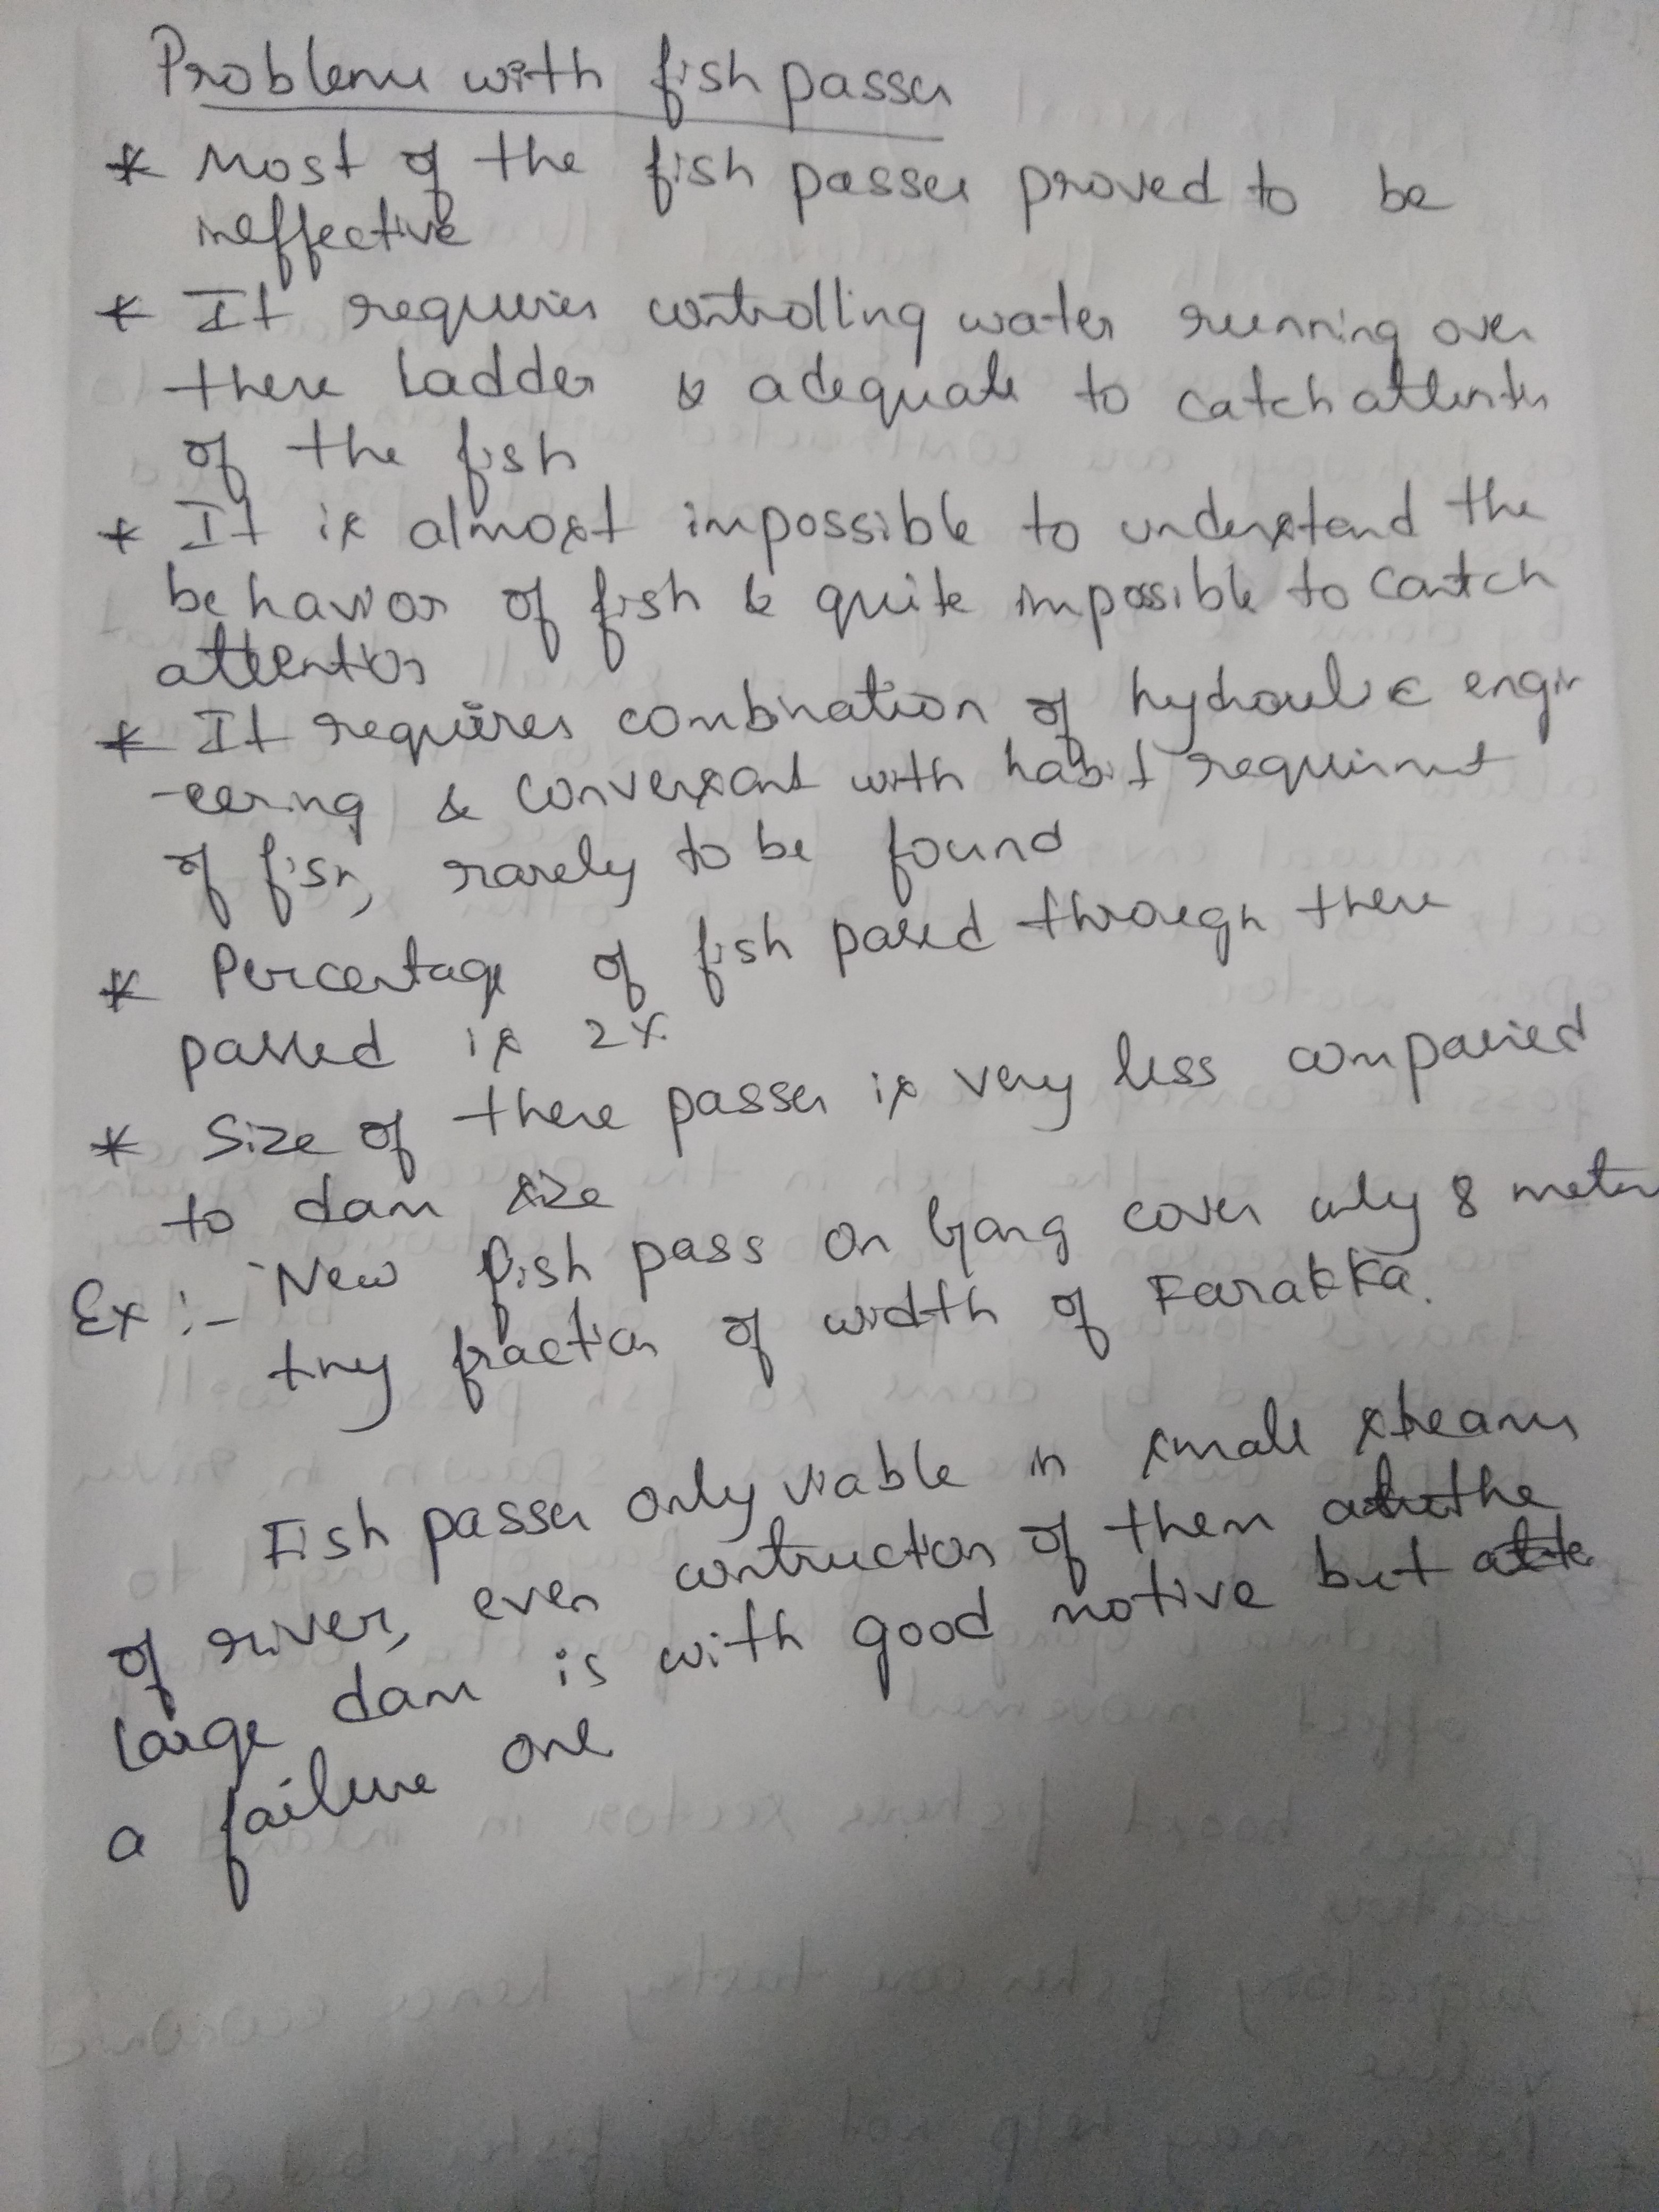 Problems with fish passes
* Most of the fish passes proved to be
ineffective
* It requires controlling water running over
these ladder & adequate to catch attention
of the fish
* It is almost impossible to understand the
behavior of fish & quite impossible to catch
attention
* It requires combination of hydraulic engin
-eering & conversant with habit requirment
of fish, rarely to be found
* Percentage of fish passed through these
passed is 2%
* Size of these passes is very less compared
to dam size
Ex :- New fish pass on Gang cover only 8 meter
tiny fraction of width of Farakka.
Fish passes only viable in small streams
of river, even contruction of them the
large dam is with good motive but
a failure one